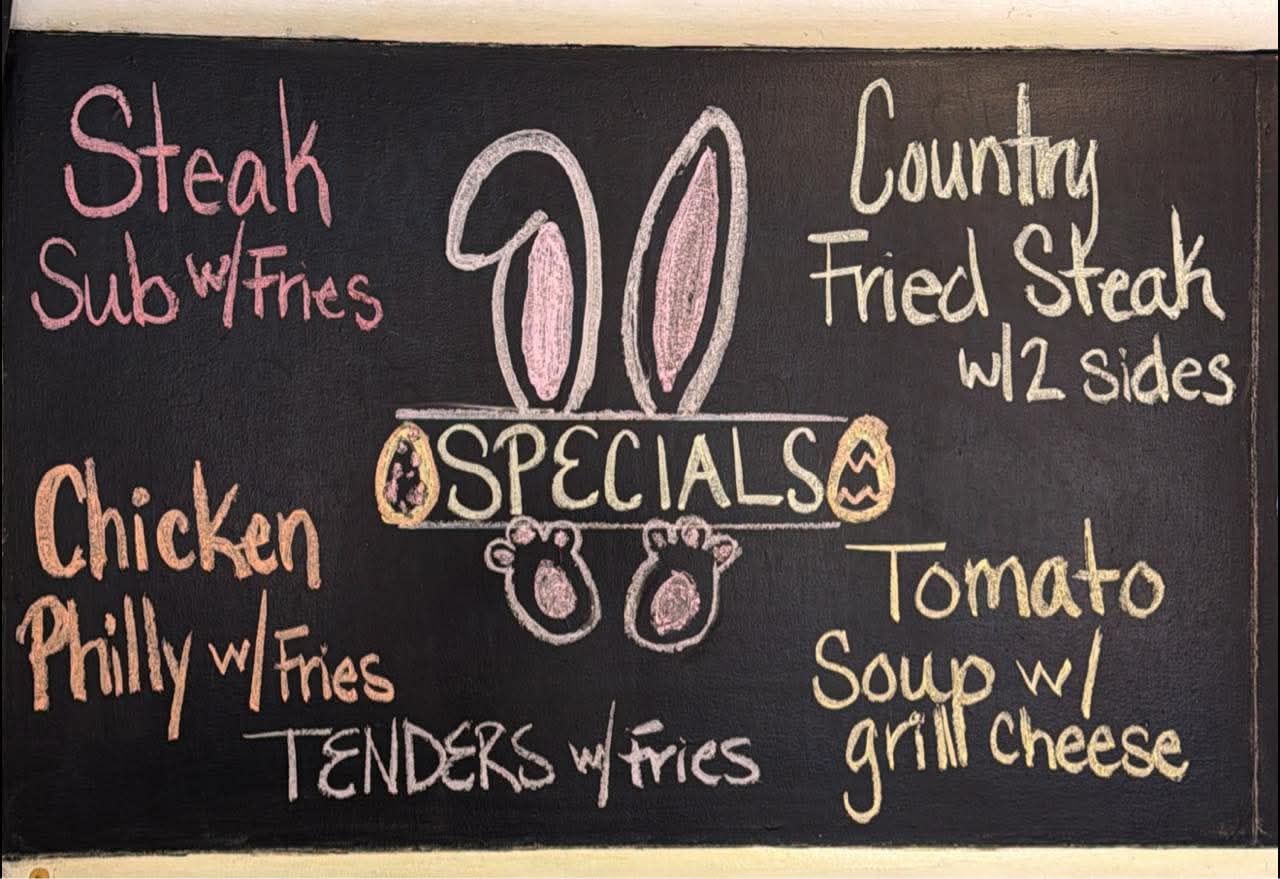 Steak
Sub w/Fries
Country
Fried Steak
w/2 sides
SPECIALS
Chicken
Philly w/Fries
Tomato
Soup w/
grill cheese
TENDERS w/fries